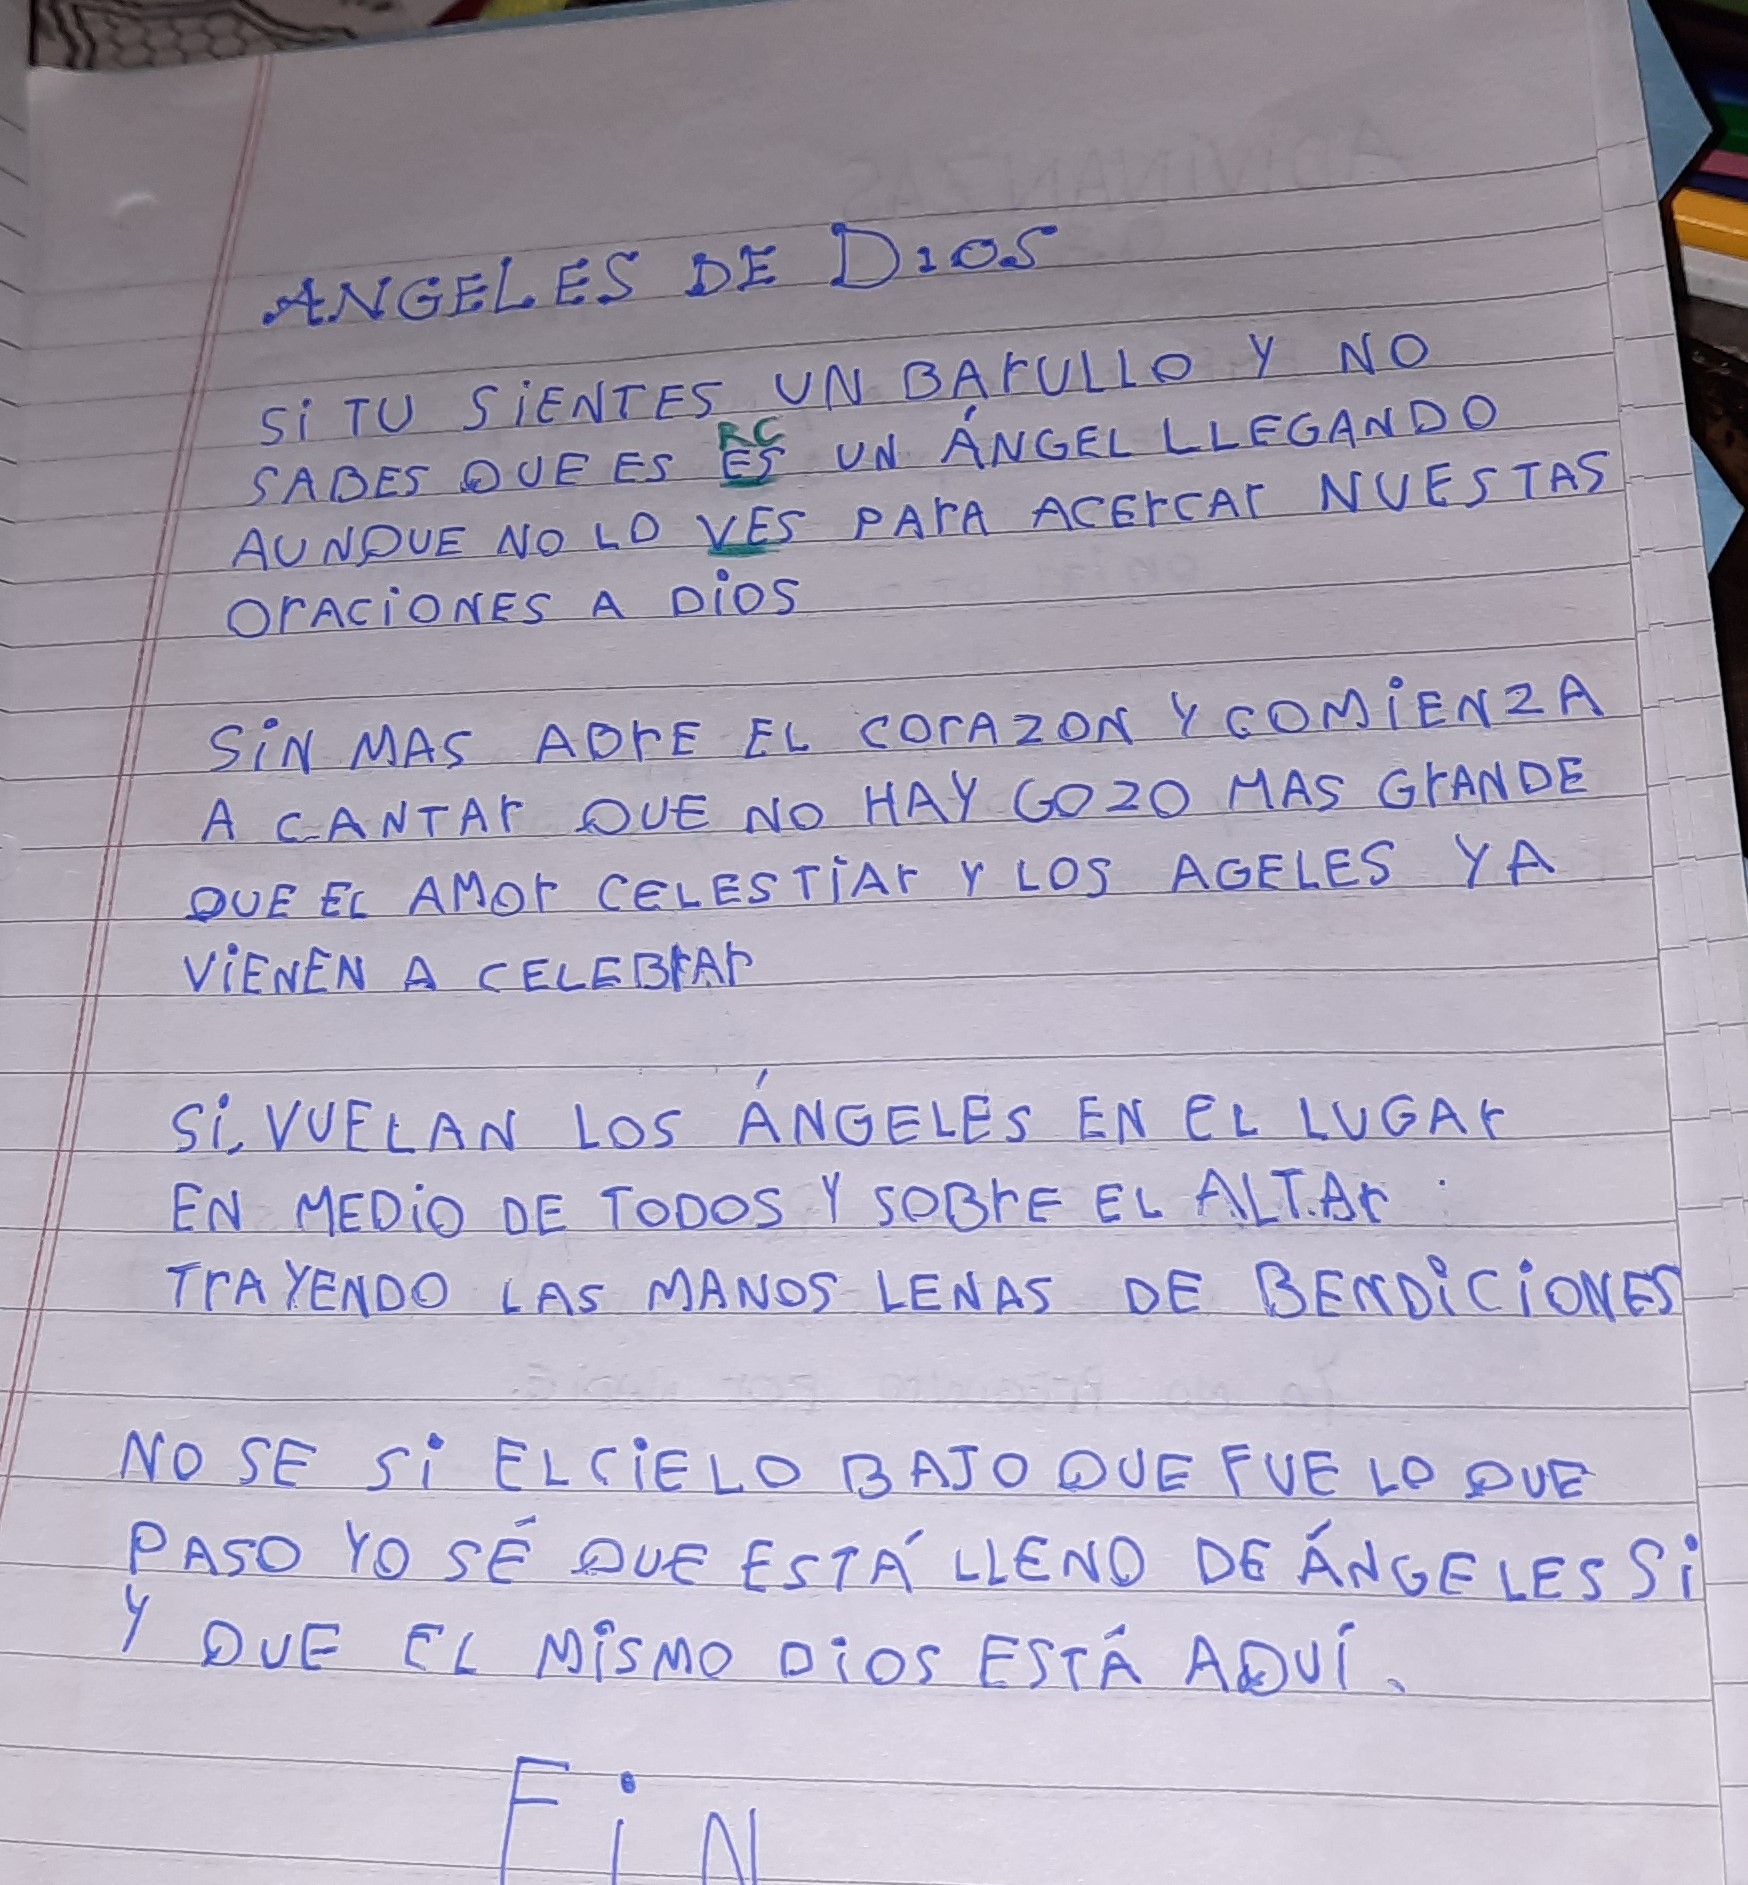 ANGELES DE DIOS
SI TU SIENTES UN BARULLO Y NO
RC
SABES QUE ES ES UN ÁNGEL LLEGANDO
AUNQUE NO LO VES PARA ACERCAR NUESTAS
ORACIONES A DIOS
SIN MAS ABRE EL CORAZON Y COMIENZA
A CANTAR QUE NO HAY GOZO MAS GRANDE
QUE EL AMOR CELESTIAR Y LOS AGELES YA
VIENEN A CELEBRAR
SI, VUELAN LOS ÁNGELES EN EL LUGAR
EN MEDIO DE TODOS Y SOBRE EL ALTAR
TRAYENDO LAS MANOS LENAS DE BENDICIONES
NO SE SI EL CIELO BAJO QUE FUE LO QUE
PASO YO SÉ QUE ESTÁ LLENO DE ÁNGELES SI
Y QUE EL MISMO DIOS ESTÁ AQUÍ.
FIN